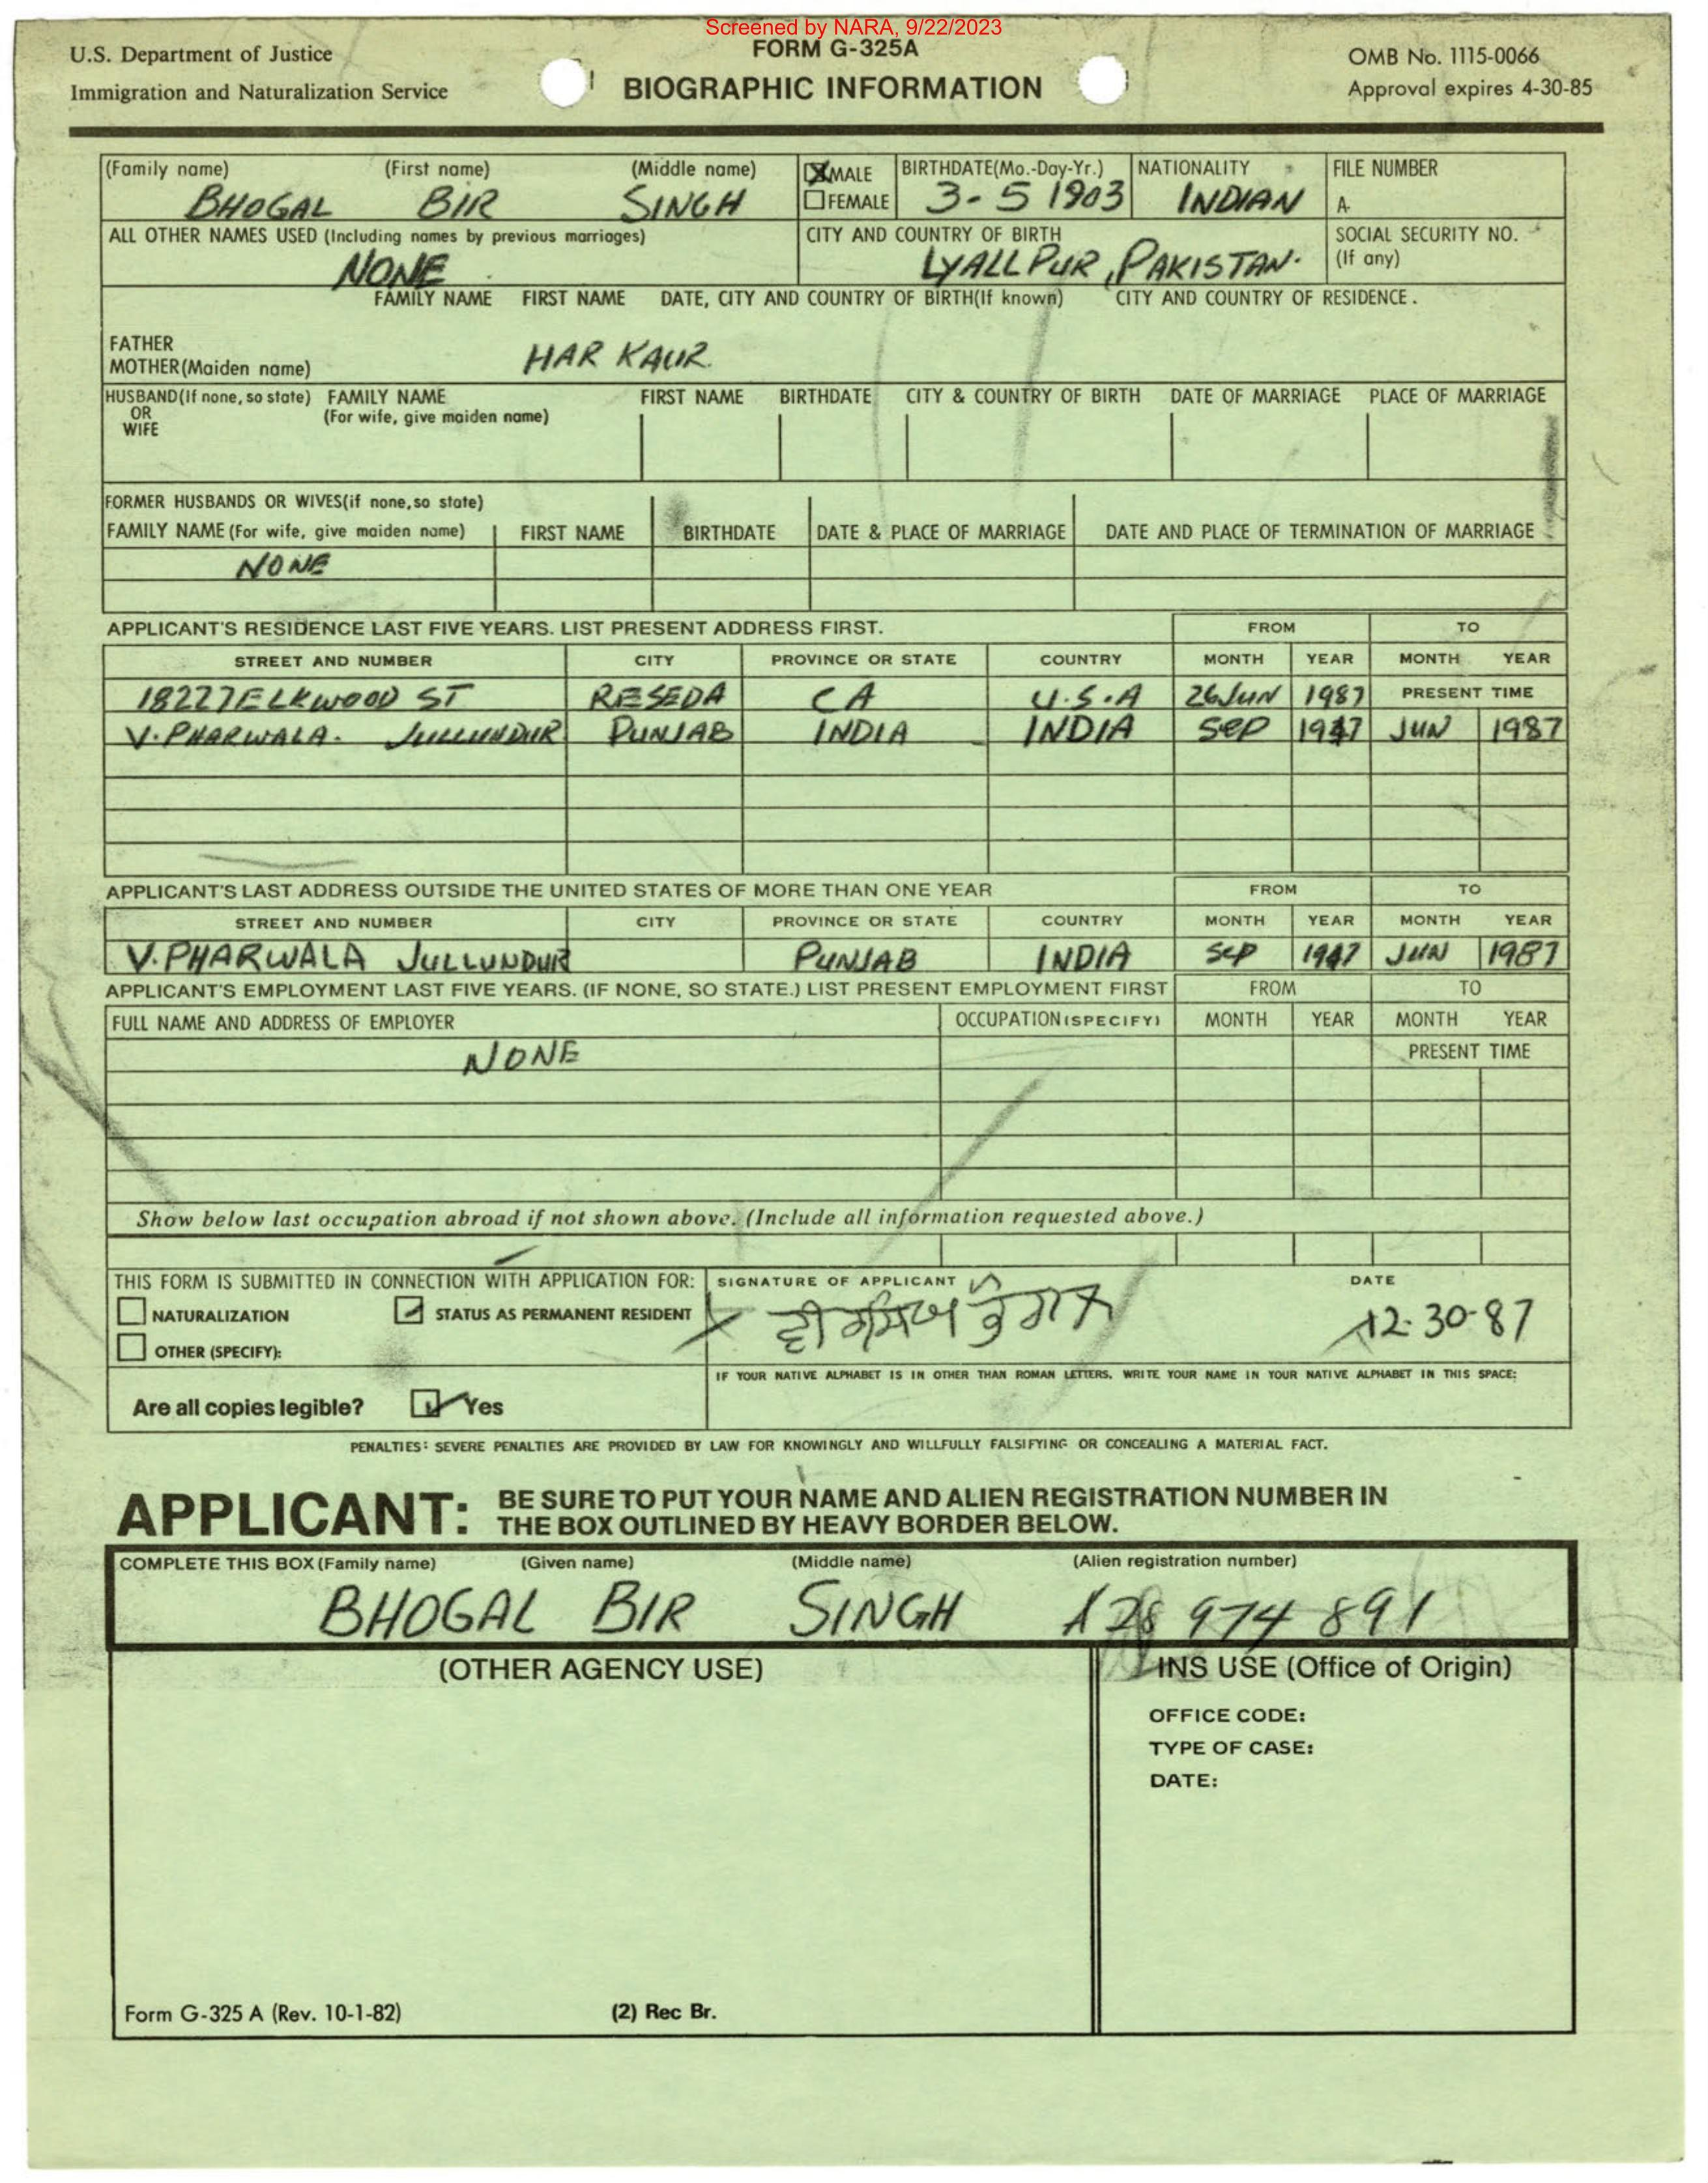 Screened by NARA, 9/22/2023
U.S. Department of Justice
Immigration and Naturalization Service
FORM G-325A
BIOGRAPHIC INFORMATION
OMB No. 1115-0066
Approval expires 4-30-85
(Family name) (First name) (Middle name) MALE FEMALE BIRTHDATE(Mo.-Day-Yr.) NATIONALITY FILE NUMBER
BHOGAL BIR SINGH 3-5 1903 INDIAN A-
ALL OTHER NAMES USED (Including names by previous marriages) CITY AND COUNTRY OF BIRTH SOCIAL SECURITY NO. (If any)
NONE LYALLPUR, PAKISTAN.
FAMILY NAME FIRST NAME DATE, CITY AND COUNTRY OF BIRTH(If known) CITY AND COUNTRY OF RESIDENCE.
FATHER
MOTHER(Maiden name) HAR KAUR.
HUSBAND(If none, so state) OR WIFE FAMILY NAME (For wife, give maiden name) FIRST NAME BIRTHDATE CITY & COUNTRY OF BIRTH DATE OF MARRIAGE PLACE OF MARRIAGE
FORMER HUSBANDS OR WIVES(if none, so state)
FAMILY NAME (For wife, give maiden name) FIRST NAME BIRTHDATE DATE & PLACE OF MARRIAGE DATE AND PLACE OF TERMINATION OF MARRIAGE
NONE
APPLICANT'S RESIDENCE LAST FIVE YEARS. LIST PRESENT ADDRESS FIRST. FROM TO
STREET AND NUMBER CITY PROVINCE OR STATE COUNTRY MONTH YEAR MONTH YEAR
18227 ELKWOOD ST RESEDA CA U.S.A 26 JUN 1987 PRESENT TIME
V. PHARWALA. JULLUNDUR PUNJAB INDIA INDIA SEP 1947 JUN 1987
APPLICANT'S LAST ADDRESS OUTSIDE THE UNITED STATES OF MORE THAN ONE YEAR FROM TO
STREET AND NUMBER CITY PROVINCE OR STATE COUNTRY MONTH YEAR MONTH YEAR
V. PHARWALA JULLUNDUR PUNJAB INDIA SEP 1947 JUN 1987
APPLICANT'S EMPLOYMENT LAST FIVE YEARS. (IF NONE, SO STATE.) LIST PRESENT EMPLOYMENT FIRST FROM TO
FULL NAME AND ADDRESS OF EMPLOYER OCCUPATION (SPECIFY) MONTH YEAR MONTH YEAR
NONE PRESENT TIME
Show below last occupation abroad if not shown above. (Include all information requested above.)
THIS FORM IS SUBMITTED IN CONNECTION WITH APPLICATION FOR: SIGNATURE OF APPLICANT DATE
NATURALIZATION STATUS AS PERMANENT RESIDENT 12-30-87
OTHER (SPECIFY):
IF YOUR NATIVE ALPHABET IS IN OTHER THAN ROMAN LETTERS, WRITE YOUR NAME IN YOUR NATIVE ALPHABET IN THIS SPACE:
Are all copies legible? Yes
PENALTIES: SEVERE PENALTIES ARE PROVIDED BY LAW FOR KNOWINGLY AND WILLFULLY FALSIFYING OR CONCEALING A MATERIAL FACT.
APPLICANT: BE SURE TO PUT YOUR NAME AND ALIEN REGISTRATION NUMBER IN
THE BOX OUTLINED BY HEAVY BORDER BELOW.
COMPLETE THIS BOX (Family name) (Given name) (Middle name) (Alien registration number)
BHOGAL BIR SINGH A28 974 891
(OTHER AGENCY USE) INS USE (Office of Origin)
OFFICE CODE:
TYPE OF CASE:
DATE:
Form G-325 A (Rev. 10-1-82) (2) Rec Br.